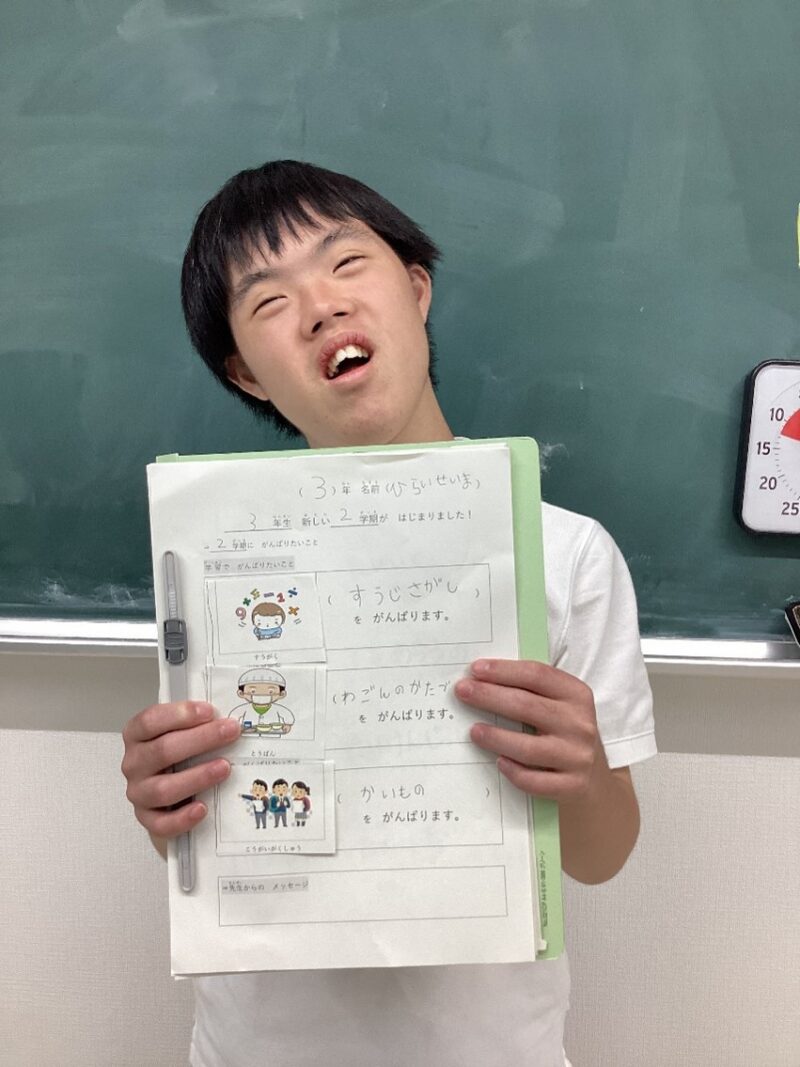 (3)年 名前(ひらいせいま)
3 年生 新しい 2 学期が はじまりました！
2 学期に がんばりたいこと
学習で がんばりたいこと
すうがく
( すうじさがし )
を がんばります。
とうばん
(わごんのかたづ
を がんばります。
こうがいがくしゅう
( かいもの )
を がんばります。
⇒先生からの メッセージ
10
15
20
25